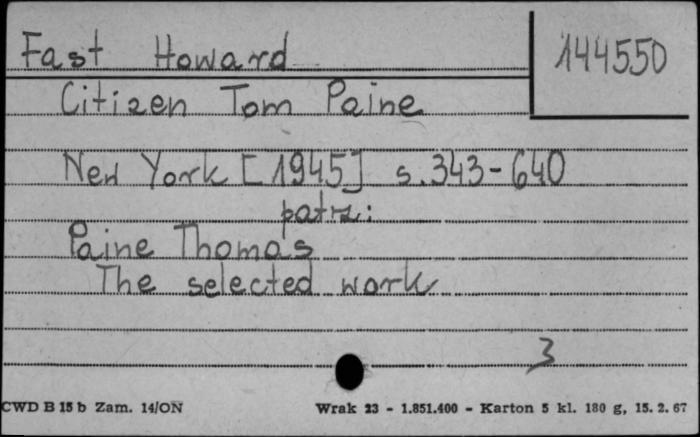 Fast Howard
144550
Citizen Tom Paine
New York [1945] s. 343-640
patrz:
Paine Thomas
The selected work
3
CWD B 15 b Zam. 14/ON
Wrak 23 - 1.851.400 - Karton 5 kl. 180 g, 15. 2. 67